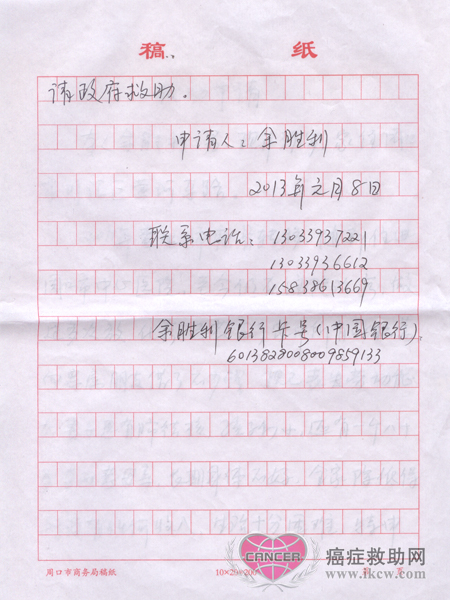 稿 纸
请政府救助。
申请人：余胜利
2013年元月8日
联系电话：13033937221
13033936612
15838613669
余胜利银行卡号(中国银行)。
6013828008009859133
CANCER
癌症救助网
www.ikcw.com
周口市商务局稿纸
10×20=200
第 页